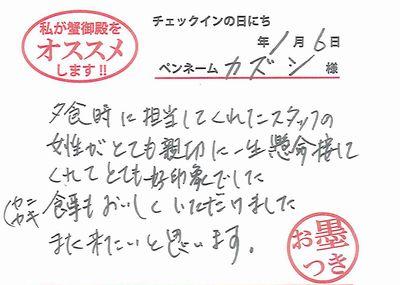 私が蟹御殿を
オススメ
します!!
チェックインの日にち
年1月6日
ペンネーム カズシ 様
夕食時に担当してくれたスタッフの
女性がとても親切に一生懸命接して
くれてとても好印象でした
(カニ カキ) 食事もおいしくいただけました
また来たいと思います。
お墨
つき